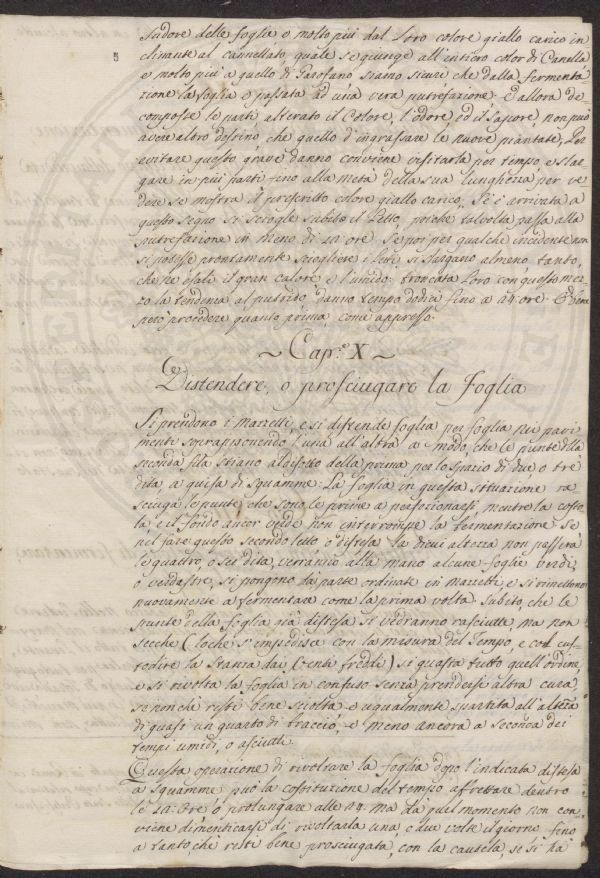 sudore delle foglia o molto più dal loro colore giallo carico in
clinante al cannellato, quale se giunge all'intiero color di Canella
o molto più a quello di Garofano siamo sicuri che dalla fermenta
zione la foglia è passata ad una vera putrefazione e allora de
composte le parti, alterato il Colore, l'odore, ed il sapore non può
avere altro destino che quello d'ingrassare le nuove piantate. Per
evitare questo grave danno conviene visitarla per tempo e slar
gare in più parti fino alla metà della sua lunghezza per ve
dere se mostra il prescritto colore giallo carico. Se è arrivata a
questo segno si scioglie subito il Letto, poiche talvolta passa alla
putrefazione in meno di 12 ore. Se poi per qualche incidente non
si potesse prontamente sciogliere i letti si slargano almeno tanto,
che ne esali il gran calore e l'umido: troncata loro con questo mez
zo la tendenza al putrido danno tempo dodici fino a 24 ore. E bene
però procedere quanto prima come appresso.
~ Cap.º X ~
Distendere, o prosciugare la Foglia
Si prendono i Mazzetti, e si distende foglia per foglia su pavi
menti soprapponendo l'una all'altra a modo, che le punte della
seconda fila stiano al disotto della prima per lo spazio di due o tre
dita a guisa di squamme: La foglia in questa situazione ra
sciuga le punte che sono le prime a perfezionarsi, mentre la costo
la e il fondo ancor verde non interrompe la fermentazione. Se
nel fare questo secondo letto o distesa la di cui altezza non passerà
le quattro, o sei dita, verranno alla mano alcune foglie verdi,
o verdastre, si pongono da parte ordinate in Mazzetti e si rimettono
nuovamente a fermentare come la prima volta. Subito, che le
punte della foglia già distesa si vedranno rasciutte, ma non
secche (lo che s'impedisce con la misura del Tempo, e col cus-
todire la stanza dai Venti freddi) si guasta tutto quell'ordine,
e si rivolta la foglia in confuso senza prendersi altra cura,
se non che resti bene sciolta e ugualmente spartita all'altezza
di quasi un quarto di braccio, e meno ancora a seconda dei
tempi umidi, o asciutti.
Questa operazione di rivoltare la foglia dopo l'indicata distesa
a squamme può la costituzione del tempo affrettare dentro
le 12 ore o prolungare alle 24. ma da quel momento non con
viene dimenticarsi di rivoltarla una, o due volte il giorno fino
a tanto, che resti bene prosciugata, con la cautela, se si ha